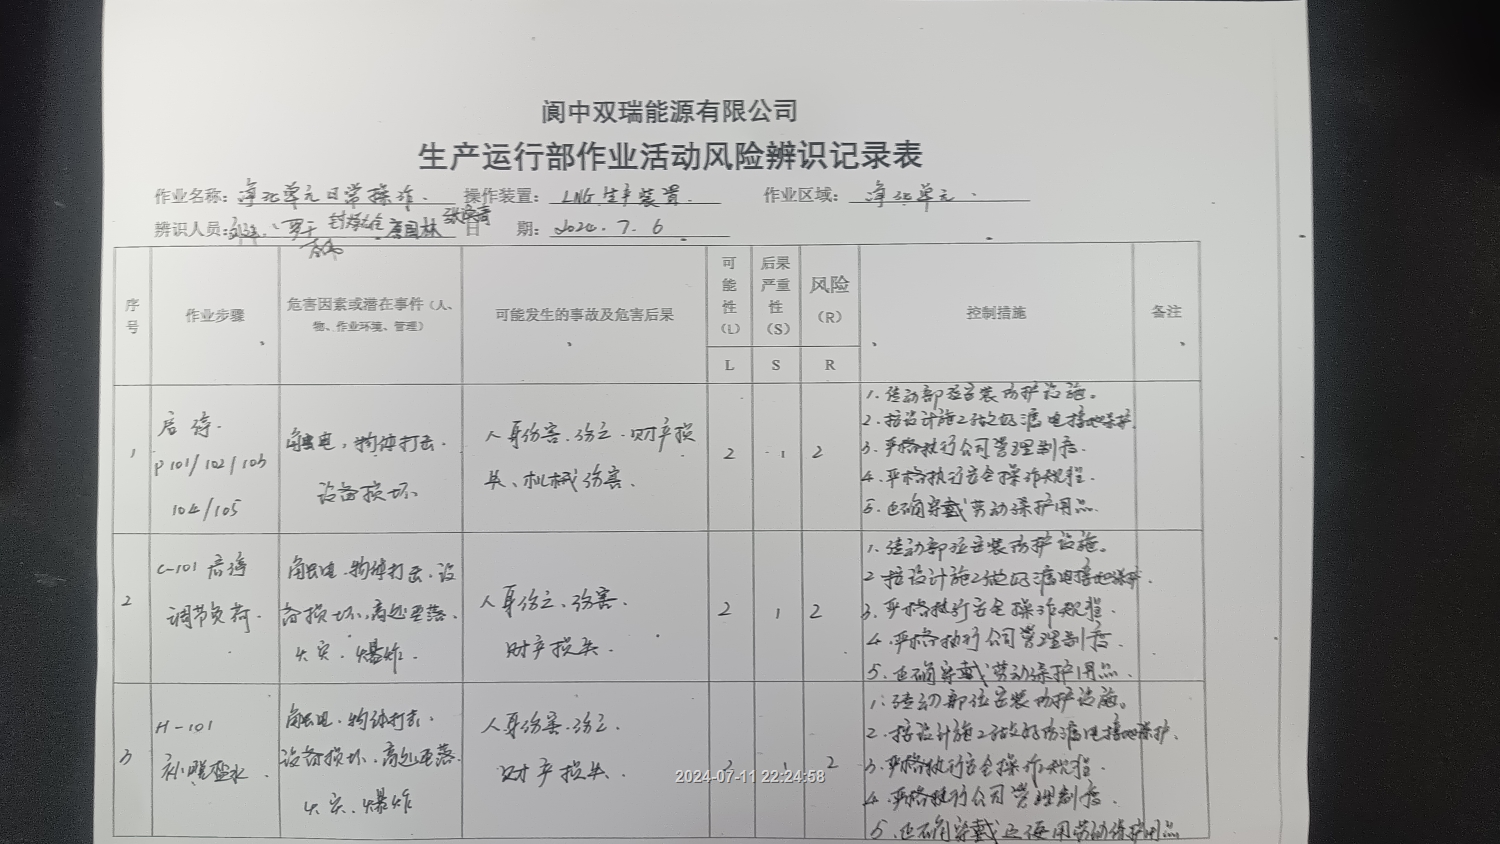 阆中双瑞能源有限公司
生产运行部作业活动风险辨识记录表
作业名称：净化单元日常操作. 操作装置：LNG生产装置. 作业区域：净化单元.
辨识人员： 罗 唐国林 日 期：2024.7.6
序号 作业步骤 危害因素或潜在事件（人、物、作业环境、管理） 可能发生的事故及危害后果 可能性（L） 后果严重性（S） 风险（R） 控制措施 备注
L S R
1
启停.
P101/102/103
104/105
触电，物体打击.
设备损坏
人身伤害.伤亡.财产损
失、机械伤害.
2 1 2
1.传动部位安装防护设施。
2.按设计施工做好漏电接地保护.
3.严格执行公司管理制度.
4.严格执行安全操作规程.
5.正确穿戴劳动保护用品.
2
C-101启停
调节负荷.
触电.物体打击.设
备损坏.高处坠落.
火灾.爆炸.
人身伤亡、伤害.
财产损失.
2 1 2
1.传动部位安装防护设施。
2按设计施工做好漏电接地保护.
3.严格执行安全操作规程.
4.严格执行公司管理制度.
5.正确穿戴劳动保护用品.
3
H-101
补脱盐水.
触电.物体打击.
设备损坏、高处坠落.
火灾.爆炸
人身伤害.伤亡.
财产损失.
2 1 2
1.传动部位安装防护设施。
2.按设计施工做好防漏电接地保护.
3.严格执行安全操作规程.
4.严格执行公司管理制度.
5.正确穿戴正使用劳动保护用品
2024-07-11 22:24:58